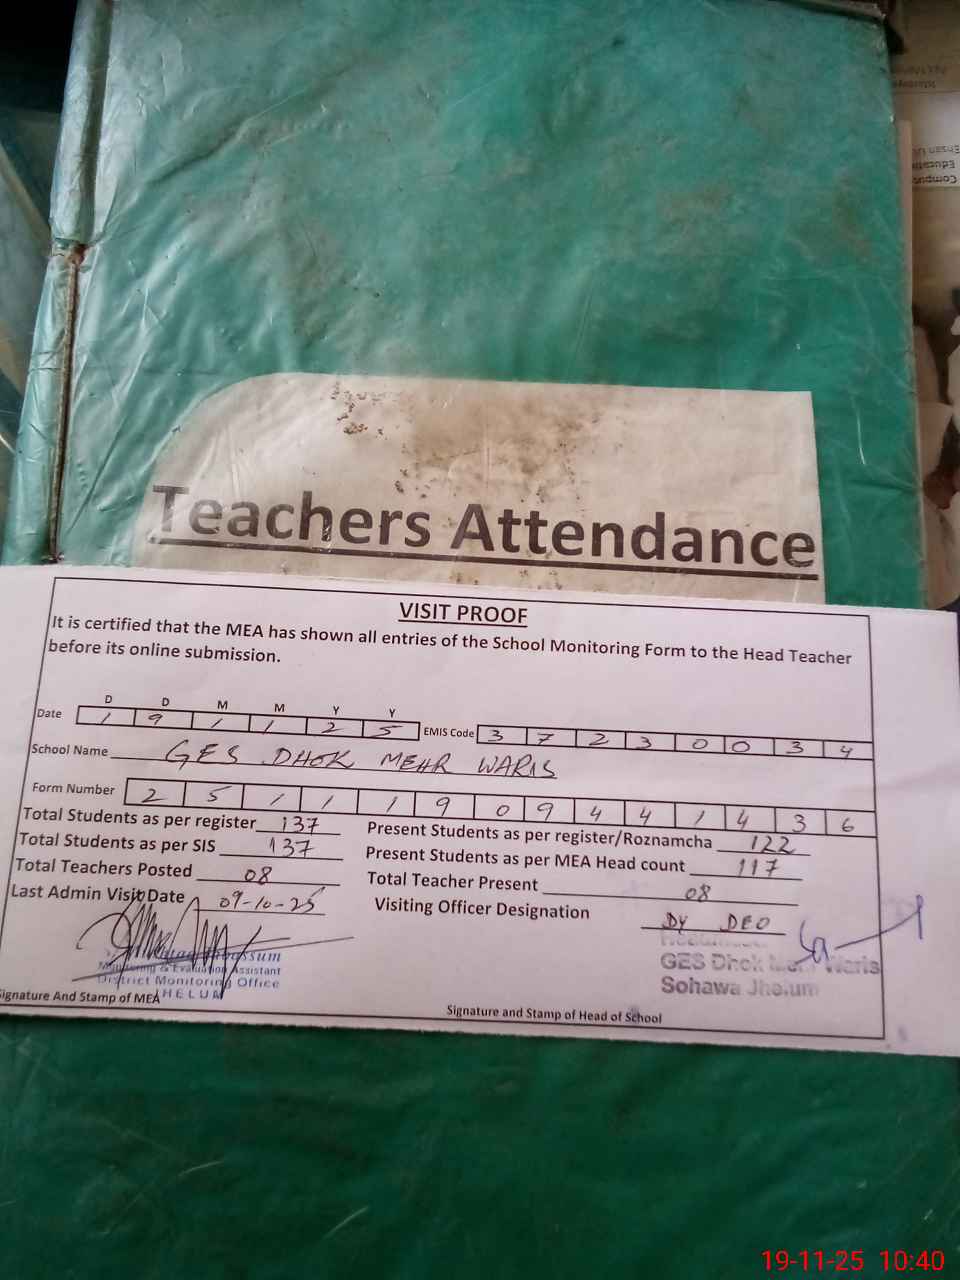 Teachers Attendance
VISIT PROOF
It is certified that the MEA has shown all entries of the School Monitoring Form to the Head Teacher
before its online submission.
D D M M Y Y
Date 1 9 1 1 2 5 EMIS Code 3 7 2 3 0 0 3 4
School Name GES DHOK MEHR WARIS
Form Number 2 5 1 1 1 9 0 9 4 4 1 4 3 6
Total Students as per register 137 Present Students as per register/Roznamcha 122
Total Students as per SIS 137 Present Students as per MEA Head count 117
Total Teachers Posted 08 Total Teacher Present 08
Last Admin Visit Date 09-10-25 Visiting Officer Designation DY DEO
Monitoring & Evaluation Assistant
District Monitoring Office
JHELUM
GES Dhok Mehr Waris
Sohawa Jhelum
Signature And Stamp of MEA
Signature and Stamp of Head of School
19-11-25 10:40